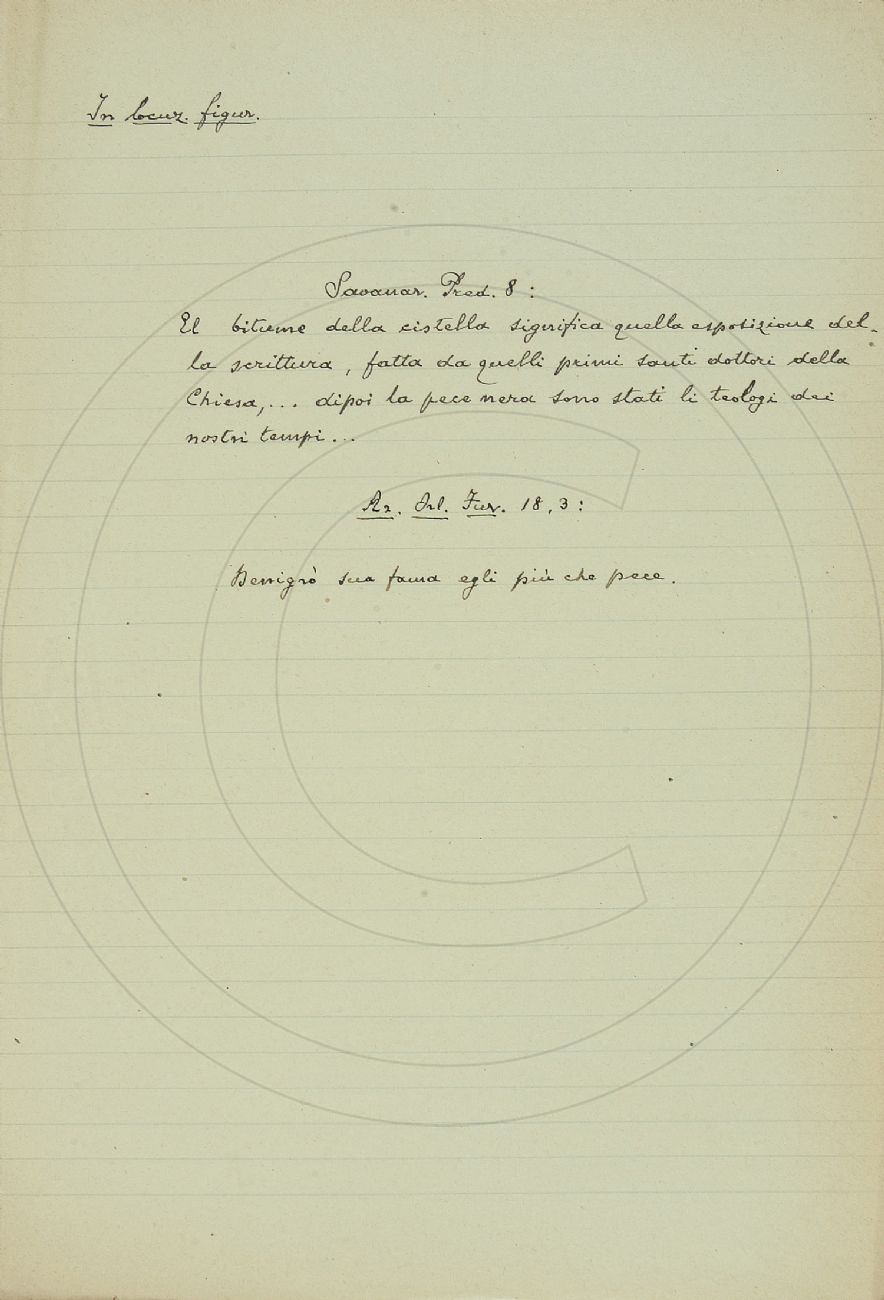 In locuz. figur.
Savanar. Pred. 8 :
El bitume della cistella significa quella esposizione del-
la scrittura, fatta da quelli primi santi dottori della
Chiesa,... dipoi la pece nera sono stati li teologi dei
nostri tempi...
Ar. Orl. Fur. 18, 3 :
Denigrò sua fama egli più che pece.